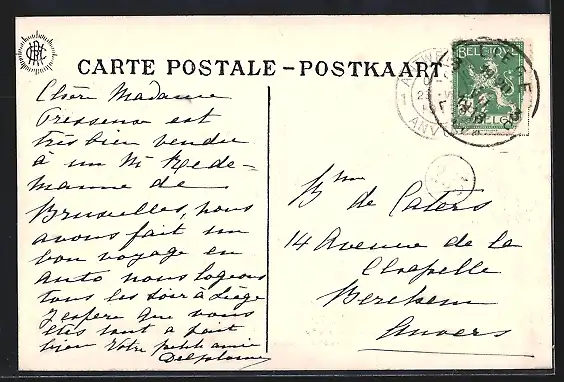 CARTE POSTALE - POSTKAART
BELGIQUE
Chère Madame
Pressense est
très bien vendu
à un Mr Rede-
manne de
Bruxelles, nous
avons fait un
bon voyage en
auto nous logeons
tous les soir à Liége
J'espère que vous
etes tout a fait
bien Votre petite amie
Bnne de Caters
14 Avenue de la
Chapelle
Berchem
Anvers